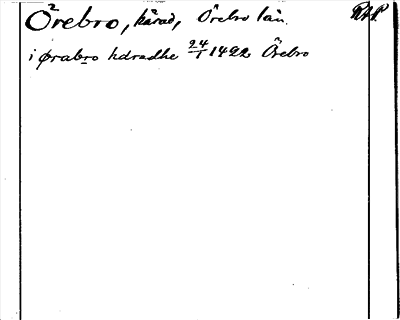 Örebro, härad, Örebro län. RAP
i ørabro hdradhe 24/1 1422 Örebro